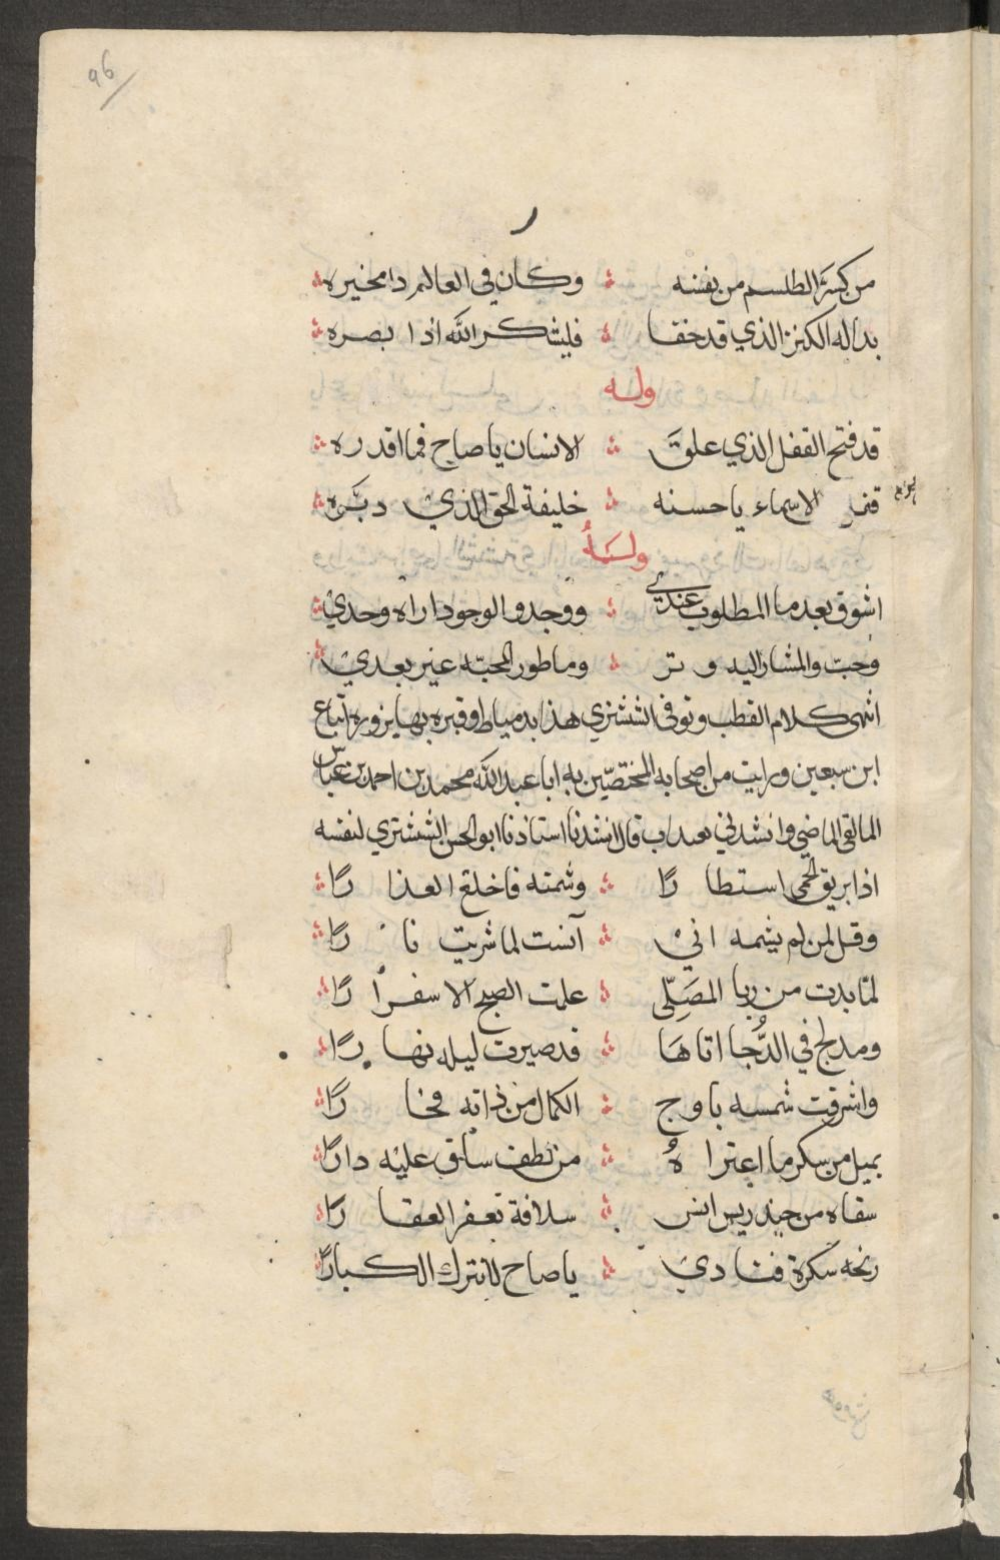 96
من كسر الطلسم من نفسه ؞ وكان في العالم دا مخيره ؞
بدا له الكنز الذي قد خفا ؞ فليشكر الله اذا ابصره ؞
وله
قد فتح القفل الذي علق ؞ الانسان يا صاح فما اقدره ؞
الاسماء يا حسنه ؞ خليفة الحق الذي دبره ؞
وله
اشوق بعد ما المطلوب عندي ؞ ووجد والوجود اراه وحدي ؞
وحب والمشار اليه وتر ؞ وما طور المحبه غير بعدي ؞
انتهى كلام القطب وتوفى الششتري هذا بدمياط وقبره بها يزوره اتباع
ابن سبعين ورايت من اصحابه المختصين به ابا عبد الله محمد بن احمد بن عباس
المالقي الماضي وانشدني قال انشدنا استاذنا ابو الحسن الششتري لنفسه
اذا بريق الحمى استطارا ؞ وشمته فاخلع العذارا ؞
وقل لمن لم يشمه اني ؞ آنست لما شريت نارا ؞
لما بدت من ربا المصلى ؞ علمت الصبح الاسفرارا ؞
ومدلج في الدجا اتاها ؞ قد صيرت ليله نهارا ؞
واشرقت شمسه باوج ؞ الكمال من ذاته فخارا ؞
يميل من سكر ما اعتراه ؞ من لطف ساق عليه دارا ؞
سقاه من خندريس انس ؞ سلافة تعفر العقارا ؞
رنحه سكرة فنادي ؞ يا صاح لا تترك الكبارا ؞